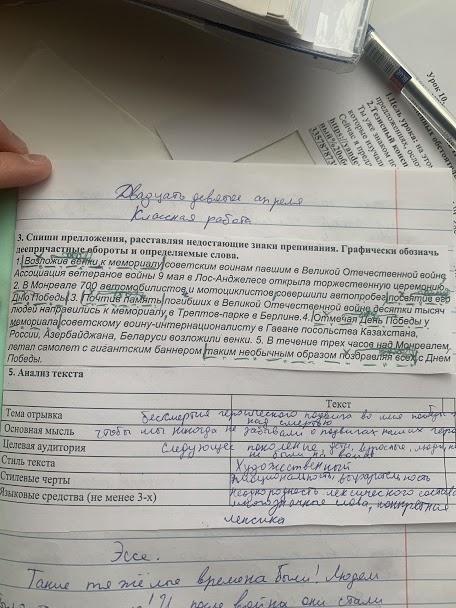 Урок 10.
1.Цель урока: на этом
предложениях, осло
2.Тезисный конс
Ты уже знаком
которые изучал
Сейчас я пред
Двадцать девятое апреля
Классная работа
3. Спиши предложения, расставляя недостающие знаки препинания. Графически обозначь
деепричастные обороты и определяемые слова.
1. Возложив венки к мемориалу советским воинам павшим в Великой Отечественной войне
Ассоциация ветеранов войны 9 мая в Лос-Анджелесе открыла торжественную церемонию.
2. В Монреале 700 автомобилистов и мотоциклистов совершили автопробег посвятив его
Дню Победы. 3. Почтив память погибших в Великой Отечественной войне десятки тысяч
людей направились к мемориалу в Трептов-парке в Берлине. 4. Отмечая День Победы у
мемориала советскому воину-интернационалисту в Гаване посольства Казахстана,
России, Азербайджана, Беларуси возложили венки. 5. В течение трех часов над Монреалем
летал самолет с гигантским баннером таким необычным образом поздравляя всех с Днем
Победы.
5. Анализ текста
Текст
Тема отрывка бессмертия героического подвига во имя победы
над смертью
Основная мысль чтобы мы никогда не забывали о подвигах наших геро
Целевая аудитория Следующее поколение, дети, взрослые, люди,
не были на войне
Стиль текста Художественный
Стилевые черты эмоциональность, выразительность
Языковые средства (не менее 3-х) неоднородность лексического состава
многозначные слова, конкретная
лексика
Эссе.
Такие тяжёлые времена были! Людям
И после война они стали